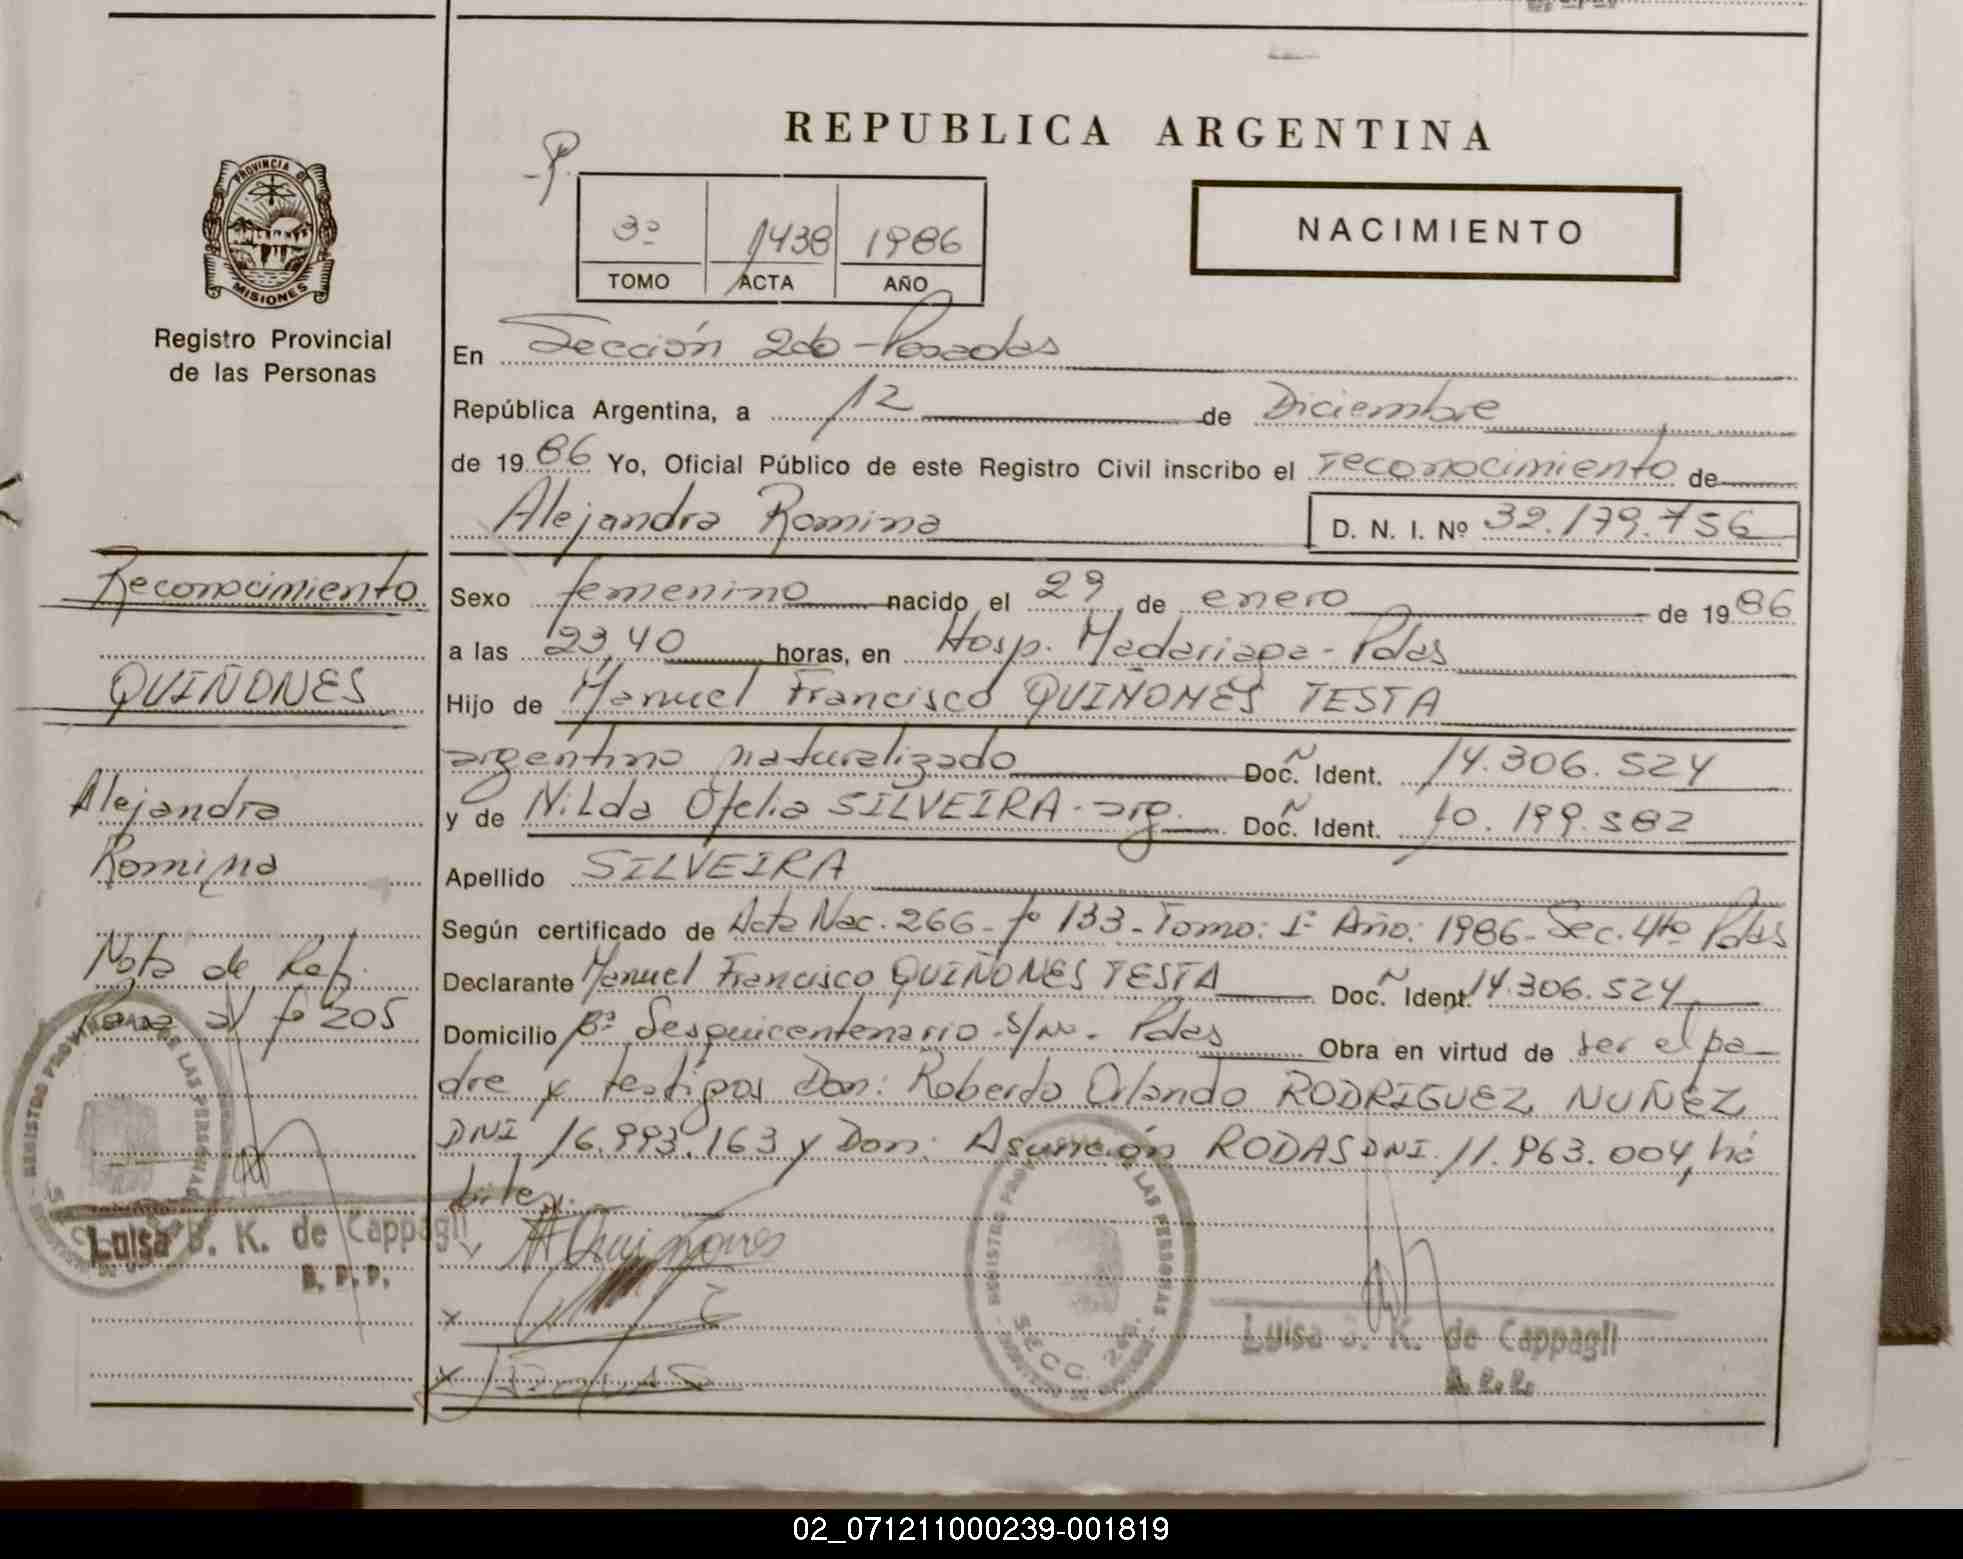 REPUBLICA ARGENTINA
PROVINCIA DE
MISIONES
Registro Provincial
de las Personas
3º 1438 1986
TOMO ACTA AÑO
NACIMIENTO
En Sección 2da - Posadas
República Argentina, a 12 de Diciembre
de 1986 Yo, Oficial Público de este Registro Civil inscribo el reconocimiento de
Alejandra Romina D. N. I. Nº 32.179.756
Reconocimiento
QUIÑONES
Alejandra
Romina
Nota de Ref.
Pasa al fº 205
Sexo femenino nacido el 29 de enero de 1986
a las 23,40 horas, en Hosp. Madariaga - Pdas
Hijo de Manuel Francisco QUIÑONES TESTA
argentino naturalizado Doc. Ident. 14.306.524
y de Nilda Ofelia SILVEIRA - arg. Doc. Ident. 10.199.582
Apellido SILVEIRA
Según certificado de Acta Nac. 266 - fº 133 - Tomo: 1º Año: 1986 - Sec. 4ta Pdas
Declarante Manuel Francisco QUIÑONES TESTA Doc. Ident. 14.306.524
Domicilio Bº Sesquicentenario - s/nº - Pdas Obra en virtud de ser el pa-
dre y testigos Don: Roberto Orlando RODRIGUEZ NUÑEZ
DNI 16.993.163 y Don: Asunción RODAS DNI. 11.963.004, há
biles.
Luisa B. K. de Cappagli
Luisa B. K. de Cappagli
SECC. 2da.
02_071211000239-001819